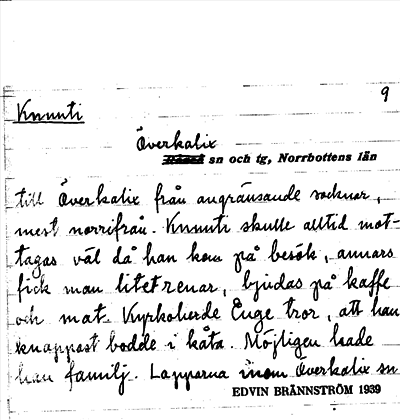 9
Knuuti
Överkalix
sn och tg, Norrbottens län
till Överkalix från angränsande socknar,
mest norrifrån. Knuuti skulle alltid mot-
tagas väl då han kom på besök, annars
fick man litet renar, bjudas på kaffe
och mat. Kyrkoherde Enge tror, att han
knappast bodde i kåta. Möjligen hade
han familj. Lapparna inom Överkalix sn
EDVIN BRÄNNSTRÖM 1939